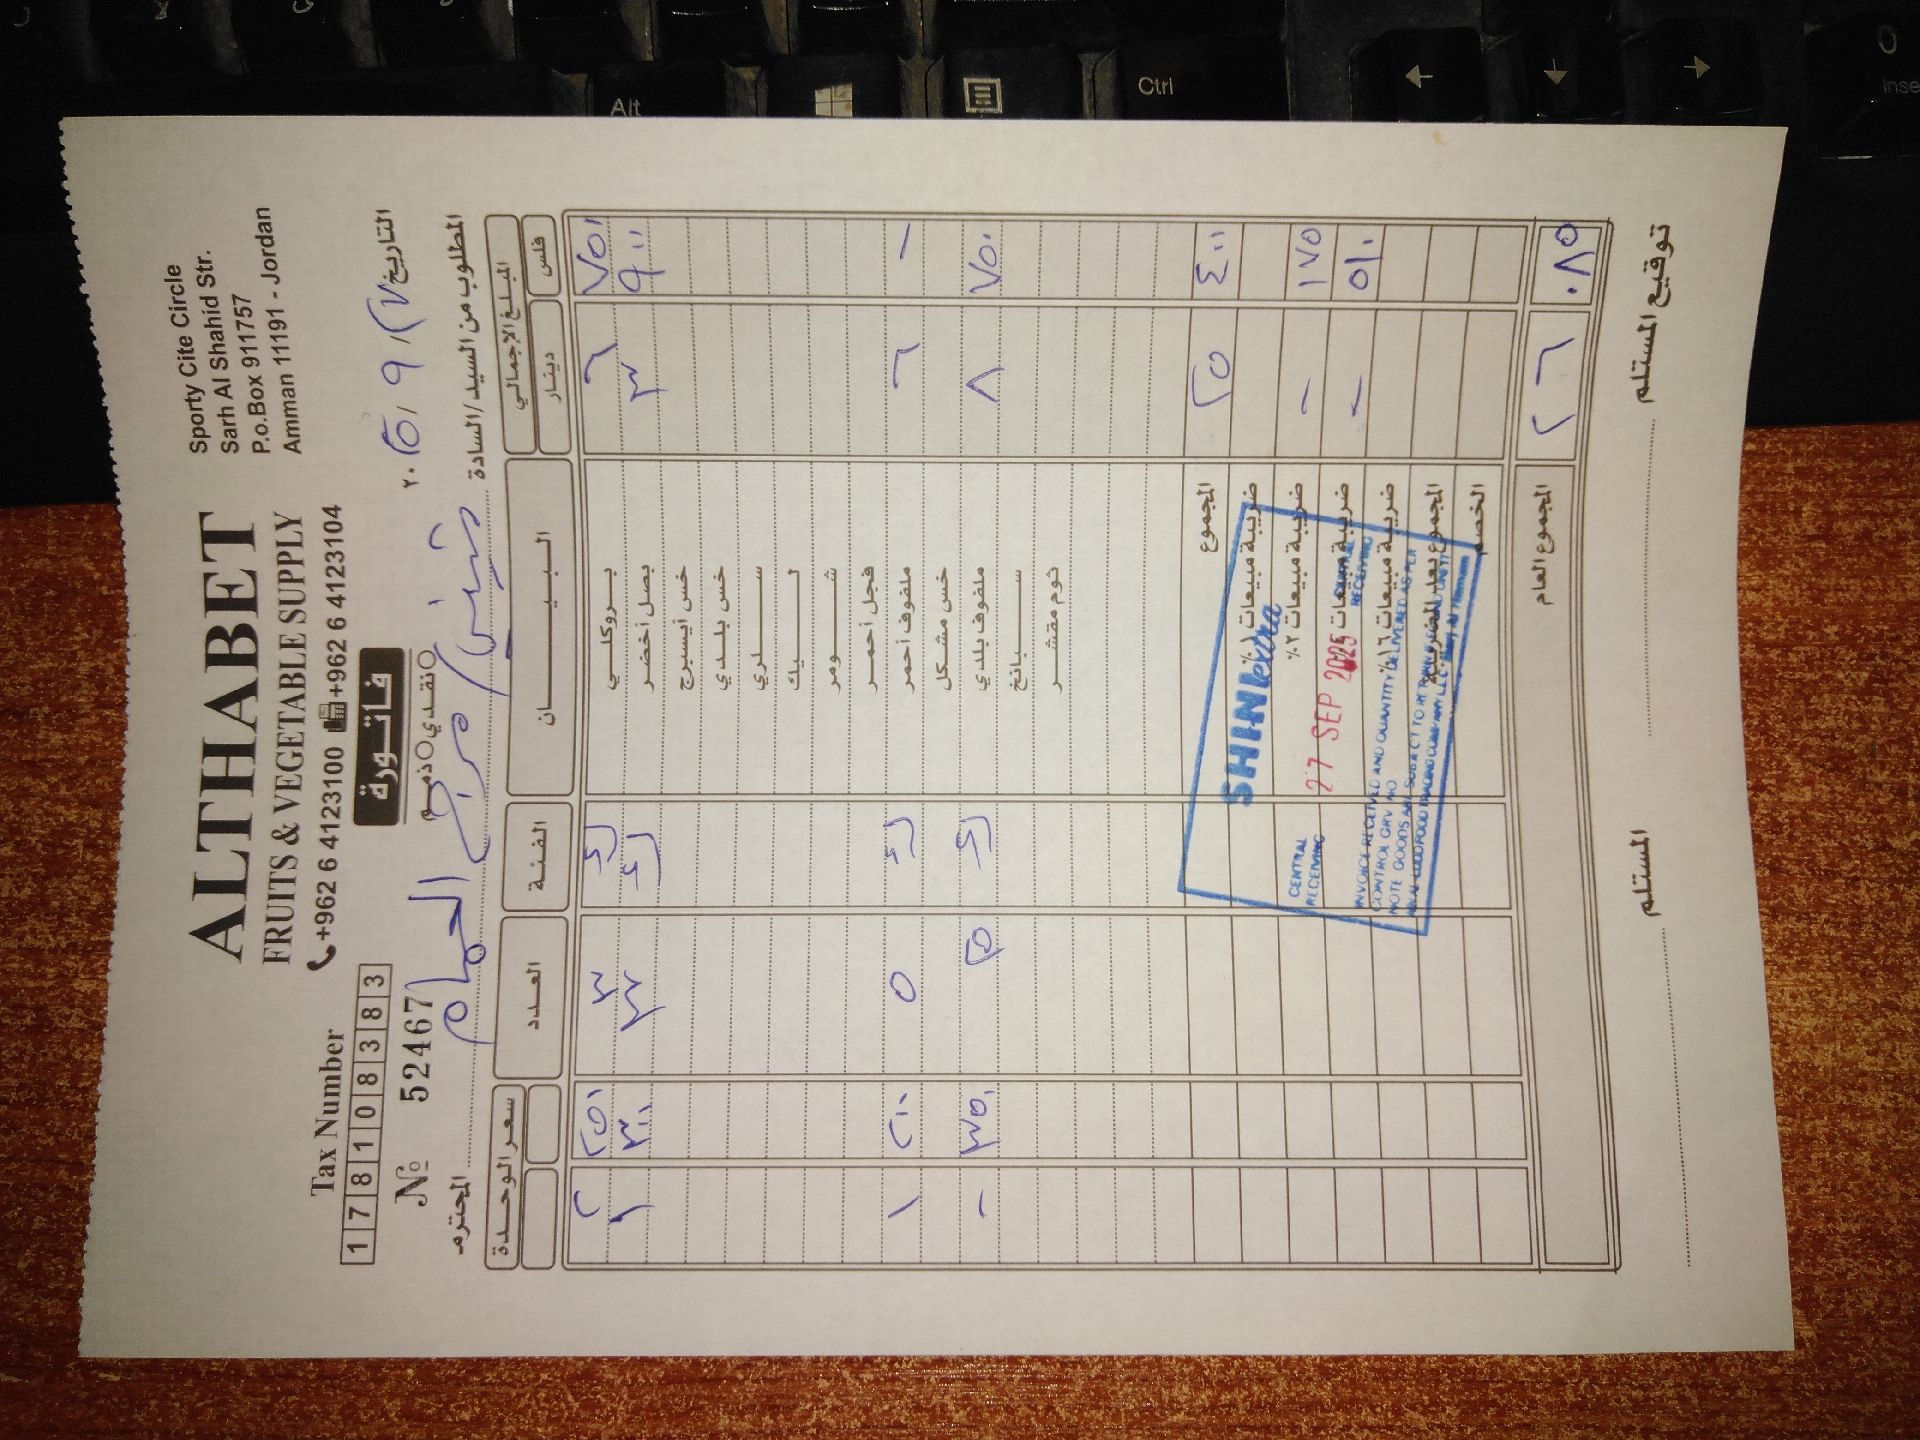 ALTHABET
FRUITS & VEGETABLE SUPPLY
+962 6 4123100 +962 6 4123104
Sporty Cite Circle
Sarh Al Shahid Str.
P.o.Box 911757
Amman 11191 - Jordan
Tax Number
1 7 8 1 0 8 3 8 3
فاتورة
نقدي ذمم
№ 52467
التاريخ ٢٧ / ٩ / ٢٠٢٥
المطلوب من السيد/السادة
المحترم
المبلغ الإجمالي البيــــان الفئة العدد سعر الوحدة
فلس دينار
٧٥٠ ٦ بروكلي ٣ ٢٥٠ ٢
٩٠٠ ٣ بصل أخضر ٣ ٣٠٠ ١
خس أيسبرج
خس بلدي
سلري
ليك
شومر
فجل أحمر
- ٦ ملفوف أحمر ٥ ٢٠٠ ١
خس مشكل
٧٥٠ ٨ ملفوف بلدي ٢٥ ٣٥٠ -
سبانخ
ثوم مقشر
٤٠٠ ٢٥ المجموع
ضريبة مبيعات ١٪
١٧٥ - ضريبة مبيعات ٢٪
٥١٠ - ضريبة مبيعات
ضريبة مبيعات ١٦٪
المجموع بعد الضريبة
الخصم
٠٨٥ ٢٦ المجموع العام
CENTRAL
RECEIVING
27 SEP 2025
RECEIVING
INVOICE RECEIVED AND QUANTITY DELIVERED AS PER
CONTROL GRV NO
NOTE GOODS ARE SUBJECT TO
المستلم
توقيع المستلم
Alt
Ctrl
Inse